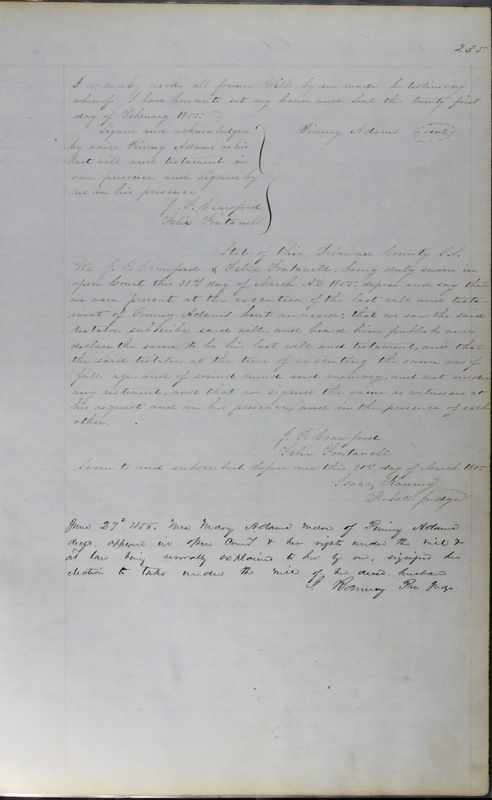 235
I do hereby revoke all former Wills by me made. In testimony
whereof I have hereunto set my hand and seal this twenty first
day of February 1855.
Signed and acknowledged
by said Pinney Adams as his
last will and testament in
our presence and signed by
us in his presence
Pinney Adams (seal)
J. P. Crawford
Felix Fontanell
State of Ohio, Delaware County S.S.
We J. P. Crawford & Felix Fontanell, being duly sworn in
open Court this 31st day of March AD 1855 depose and say that
we were present at the execution of the last will and testa-
ment of Pinney Adams hereunto annexed; that we saw the said
testator subscribe said will, and heard him publish and
declare the same to be his last will and testament, and that
the said testator at the time of executing the same was of
full age and of sound mind and memory, and not under
any restraint, and that we signed the same as witnesses at
his request and in his presence, and in the presence of each
other.
J. P. Crawford
Felix Fontanell
Sworn to and subscribed before me this 31st day of March 1855
Isaac Ranney
Probate Judge
June 27th 1855. Mrs Mary Adams widow of Pinney Adams
decd. appears in open Court & her rights under the will &
at law being severally explained to her by me, signified her
election to take under the will of her decd. husband
I. Ranney Pro. Judge